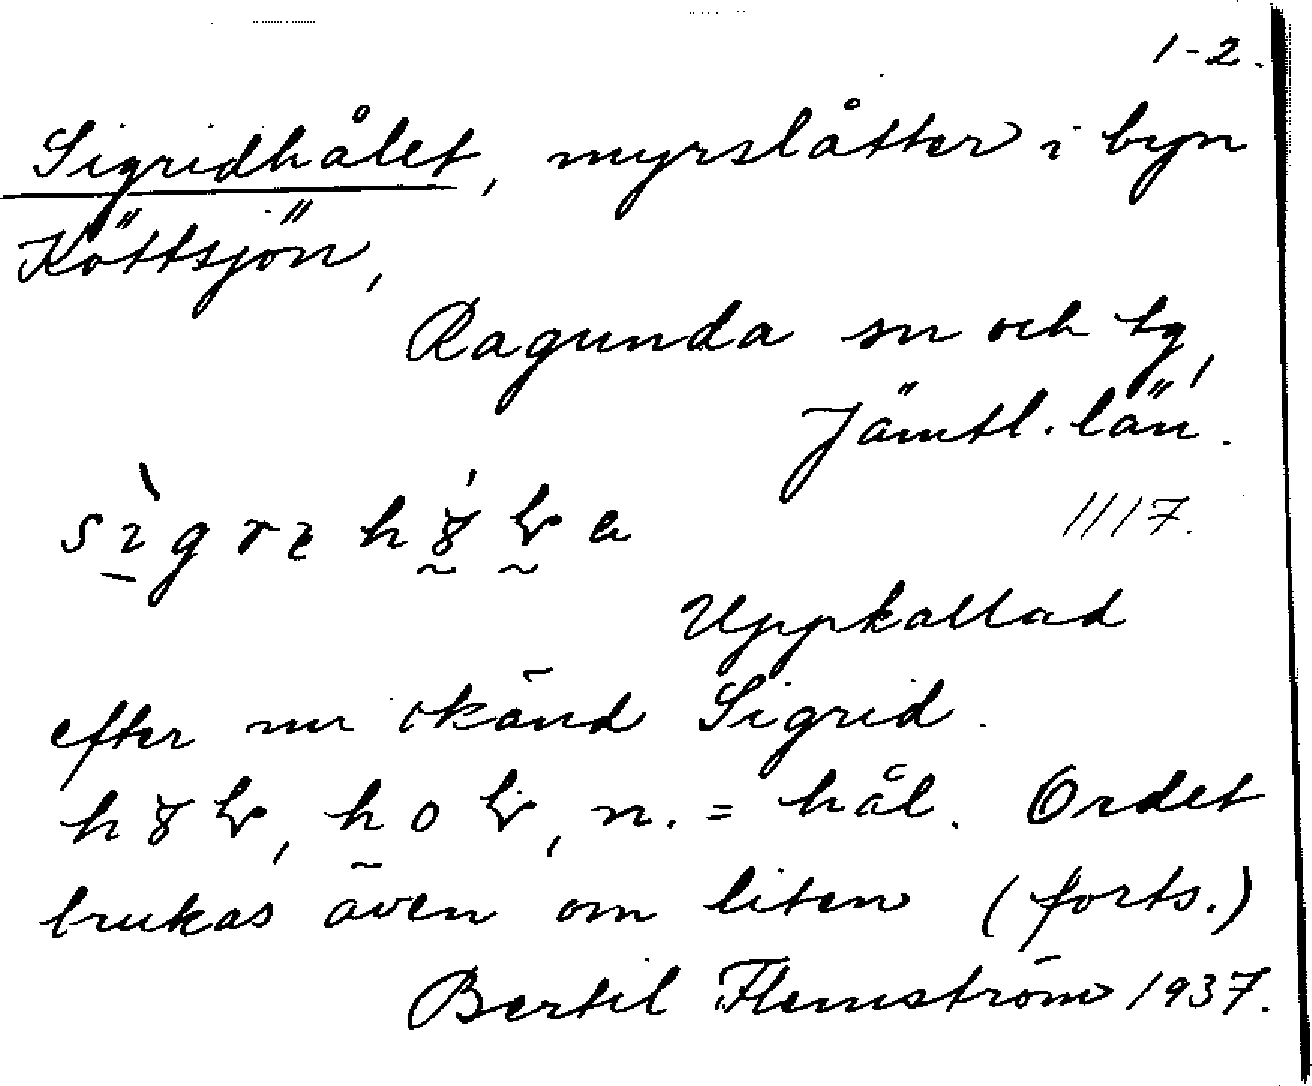 1-2.
Sigridhålet, myrslåtter i byn
Köttsjön,
Ragunda sn och tg,
Jämtl. län.
1117.
Uppkallad
efter nu okänd Sigrid.
n. = hål. Ordet
brukas även om liten (forts.)
Bertil Flemström 1937.